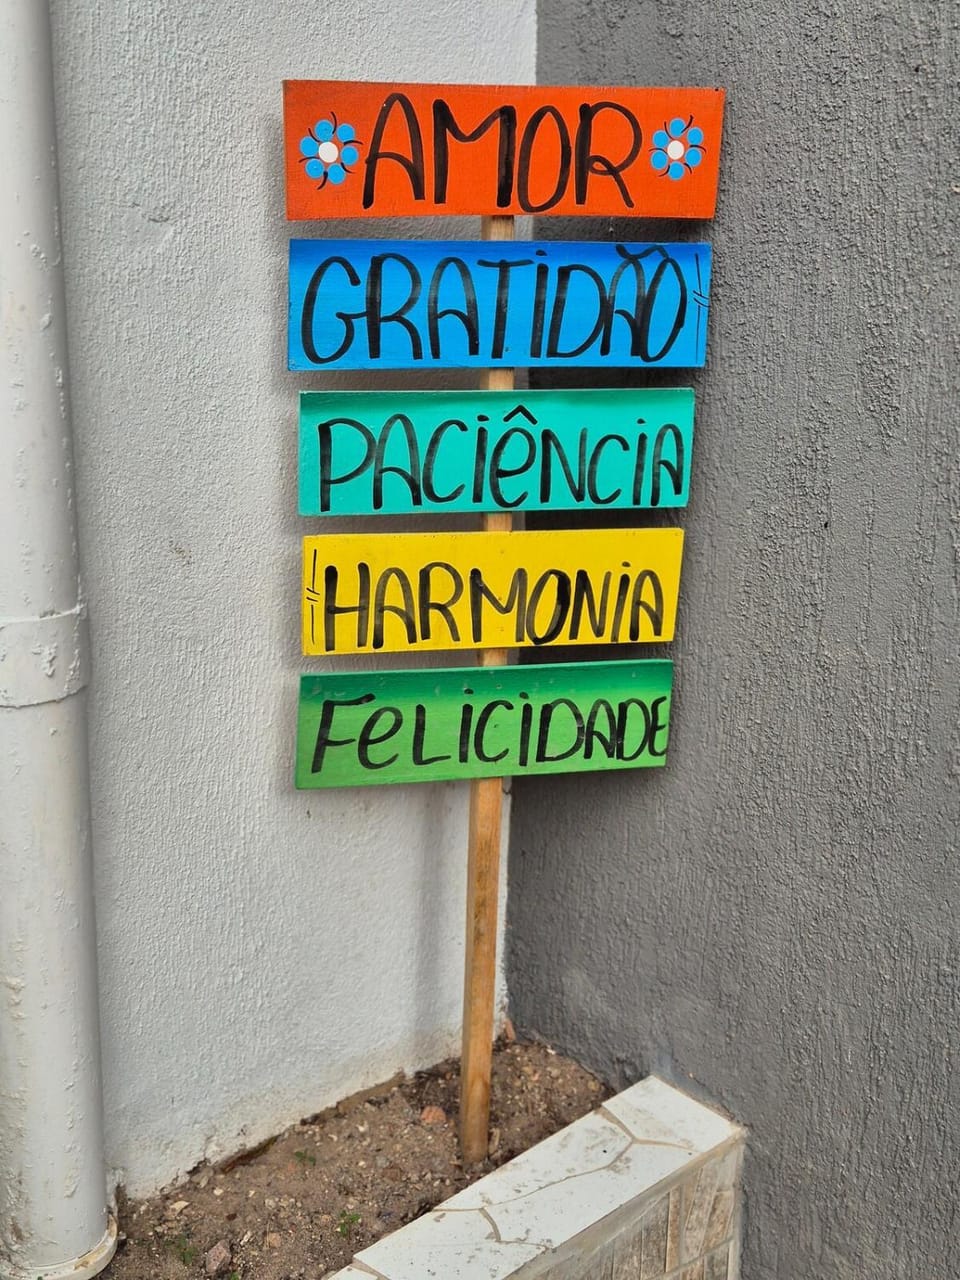 AMOR
GRATIDÃO
PACIÊNCIA
HARMONIA
FELICIDADE